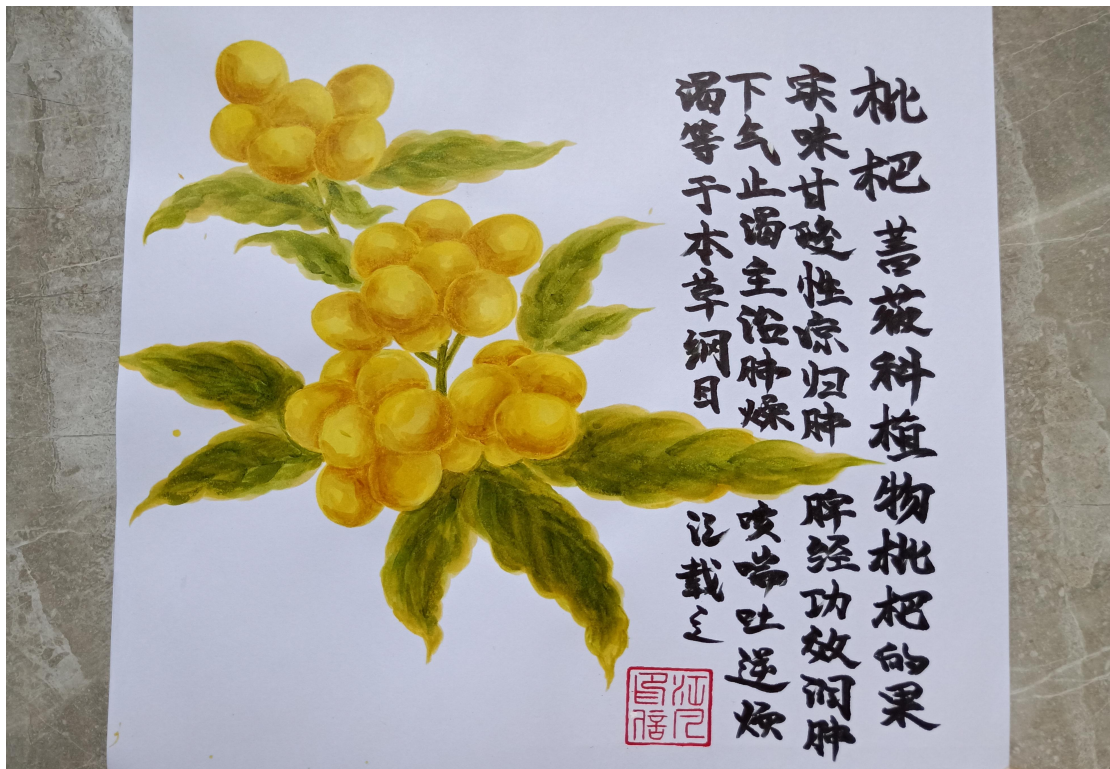 枇杷蔷薇科植物枇杷的果
实味甘酸性凉归肺脾经功效润肺
下气止渴主治肺燥咳喘吐逆烦
渴等于本草纲目记载之